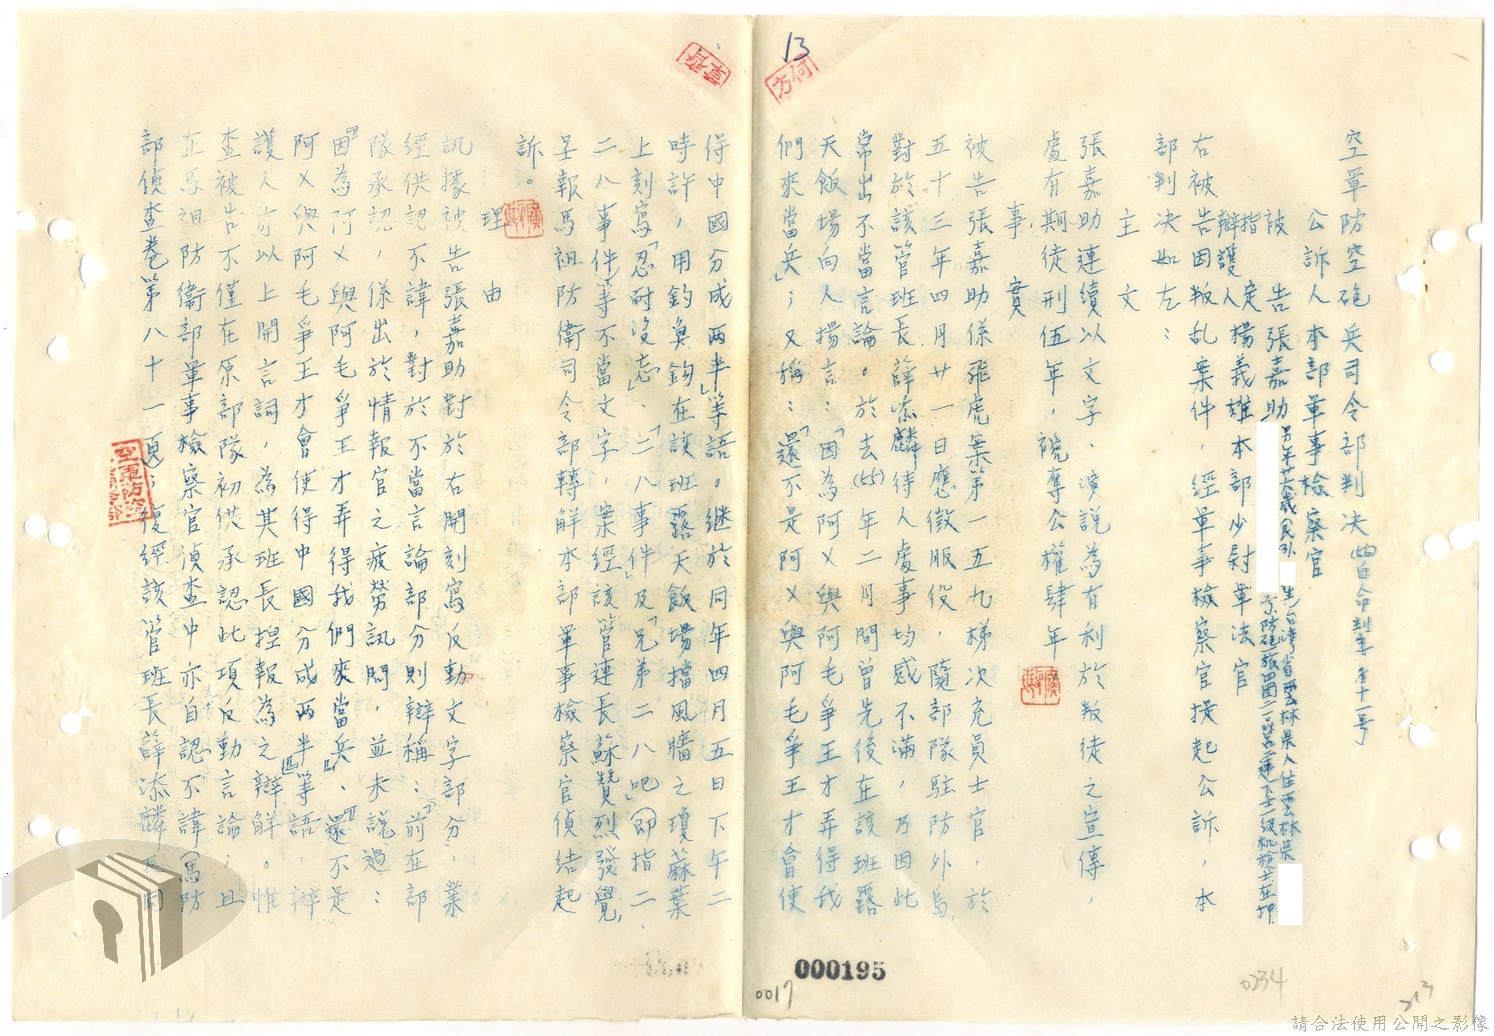 13
空軍防空砲兵司令部判決
公訴人本部軍事檢察官
被告張嘉助 男年廿六歲民 生台灣省雲林縣人住雲林縣
下士二級机槍士在押
指定
辯護人楊義雄本部少尉軍法官
右被告因叛乱案件，經軍事檢察官提起公訴，本
部判决如左：
主文
張嘉助連續以文字、演說為有利於叛徒之宣傳，
處有期徒刑伍年，褫奪公權肆年。
事實
被告張嘉助係飛虎案第一五九梯次充員士官，於
五十三年四月廿一日應徵服役，隨部隊駐防外島，
對於該管班長薛添麟待人處事均感不滿，乃因此
常出不當言論。於去(55)年二月間曾先後在該班露
天飯場向人揚言：「因為阿ㄨ與阿毛爭王才弄得我
們來當兵」；又稱：「還不是阿ㄨ與阿毛爭王才會使
得中國分成兩半」等語。继於同年四月五日下午二
時許，用釣魚鈎在該班露天飯場擋風牆之瓊蔴葉
上刻寫「忍耐沒忘」、「二八事件及「兄弟二八吧」(即指二、
二八事件)等不當文字，案經該管連長蘇贊烈發覺，
呈報馬祖防衛司令部轉解本部軍事檢察官偵結起
訴。
理由
訊據被告張嘉助對於右開刻寫反動文字部分，業
經供認不諱，對於不當言論部分則辯稱：「前在部
隊承認，係出於情報官之疲勞訊問，並未說過：
『因為阿ㄨ與阿毛爭王才弄得我們來當兵』、『還不是
阿ㄨ與阿毛爭王才會使得中國分成兩半』」等語，辯
護人亦以上開言詞，為其班長捏報為之辯解。惟
查被告不僅在原部隊初供承認此項反動言論；且
在馬祖防衛部軍事檢察官偵查中亦自認不諱(馬防
部偵查卷第八十一頁)；復經該管班長薛添麟及同
000195
0017
0234
213
請合法使用公開之影像